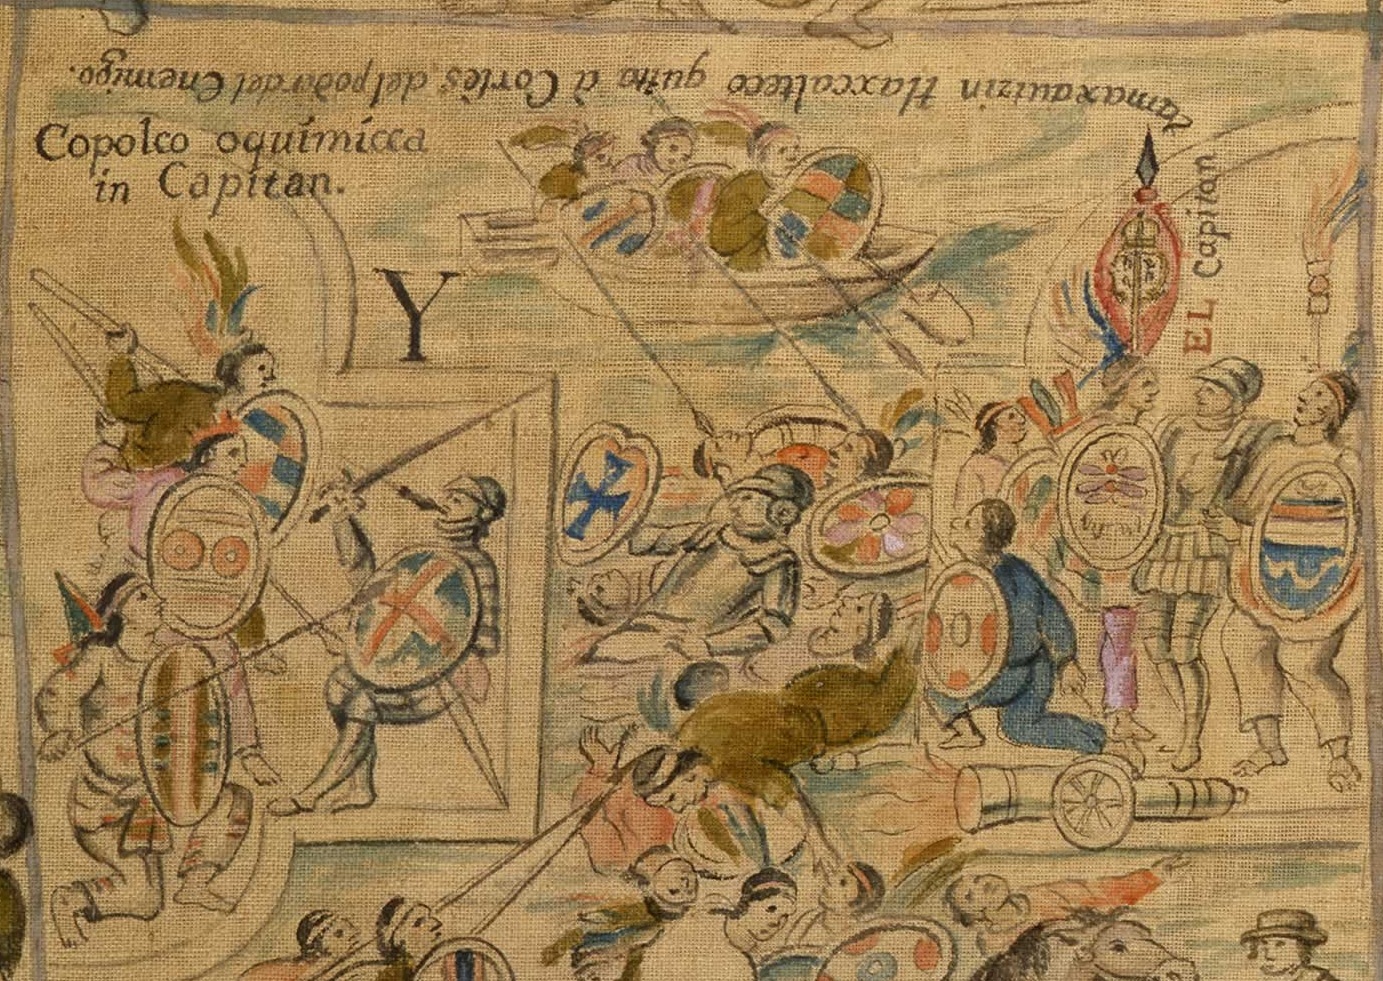 tlaxcalteco quito à Cortès del podèr del Enemigo.
Copolco oquimicca
in Capitan.
Y
EL Capitan